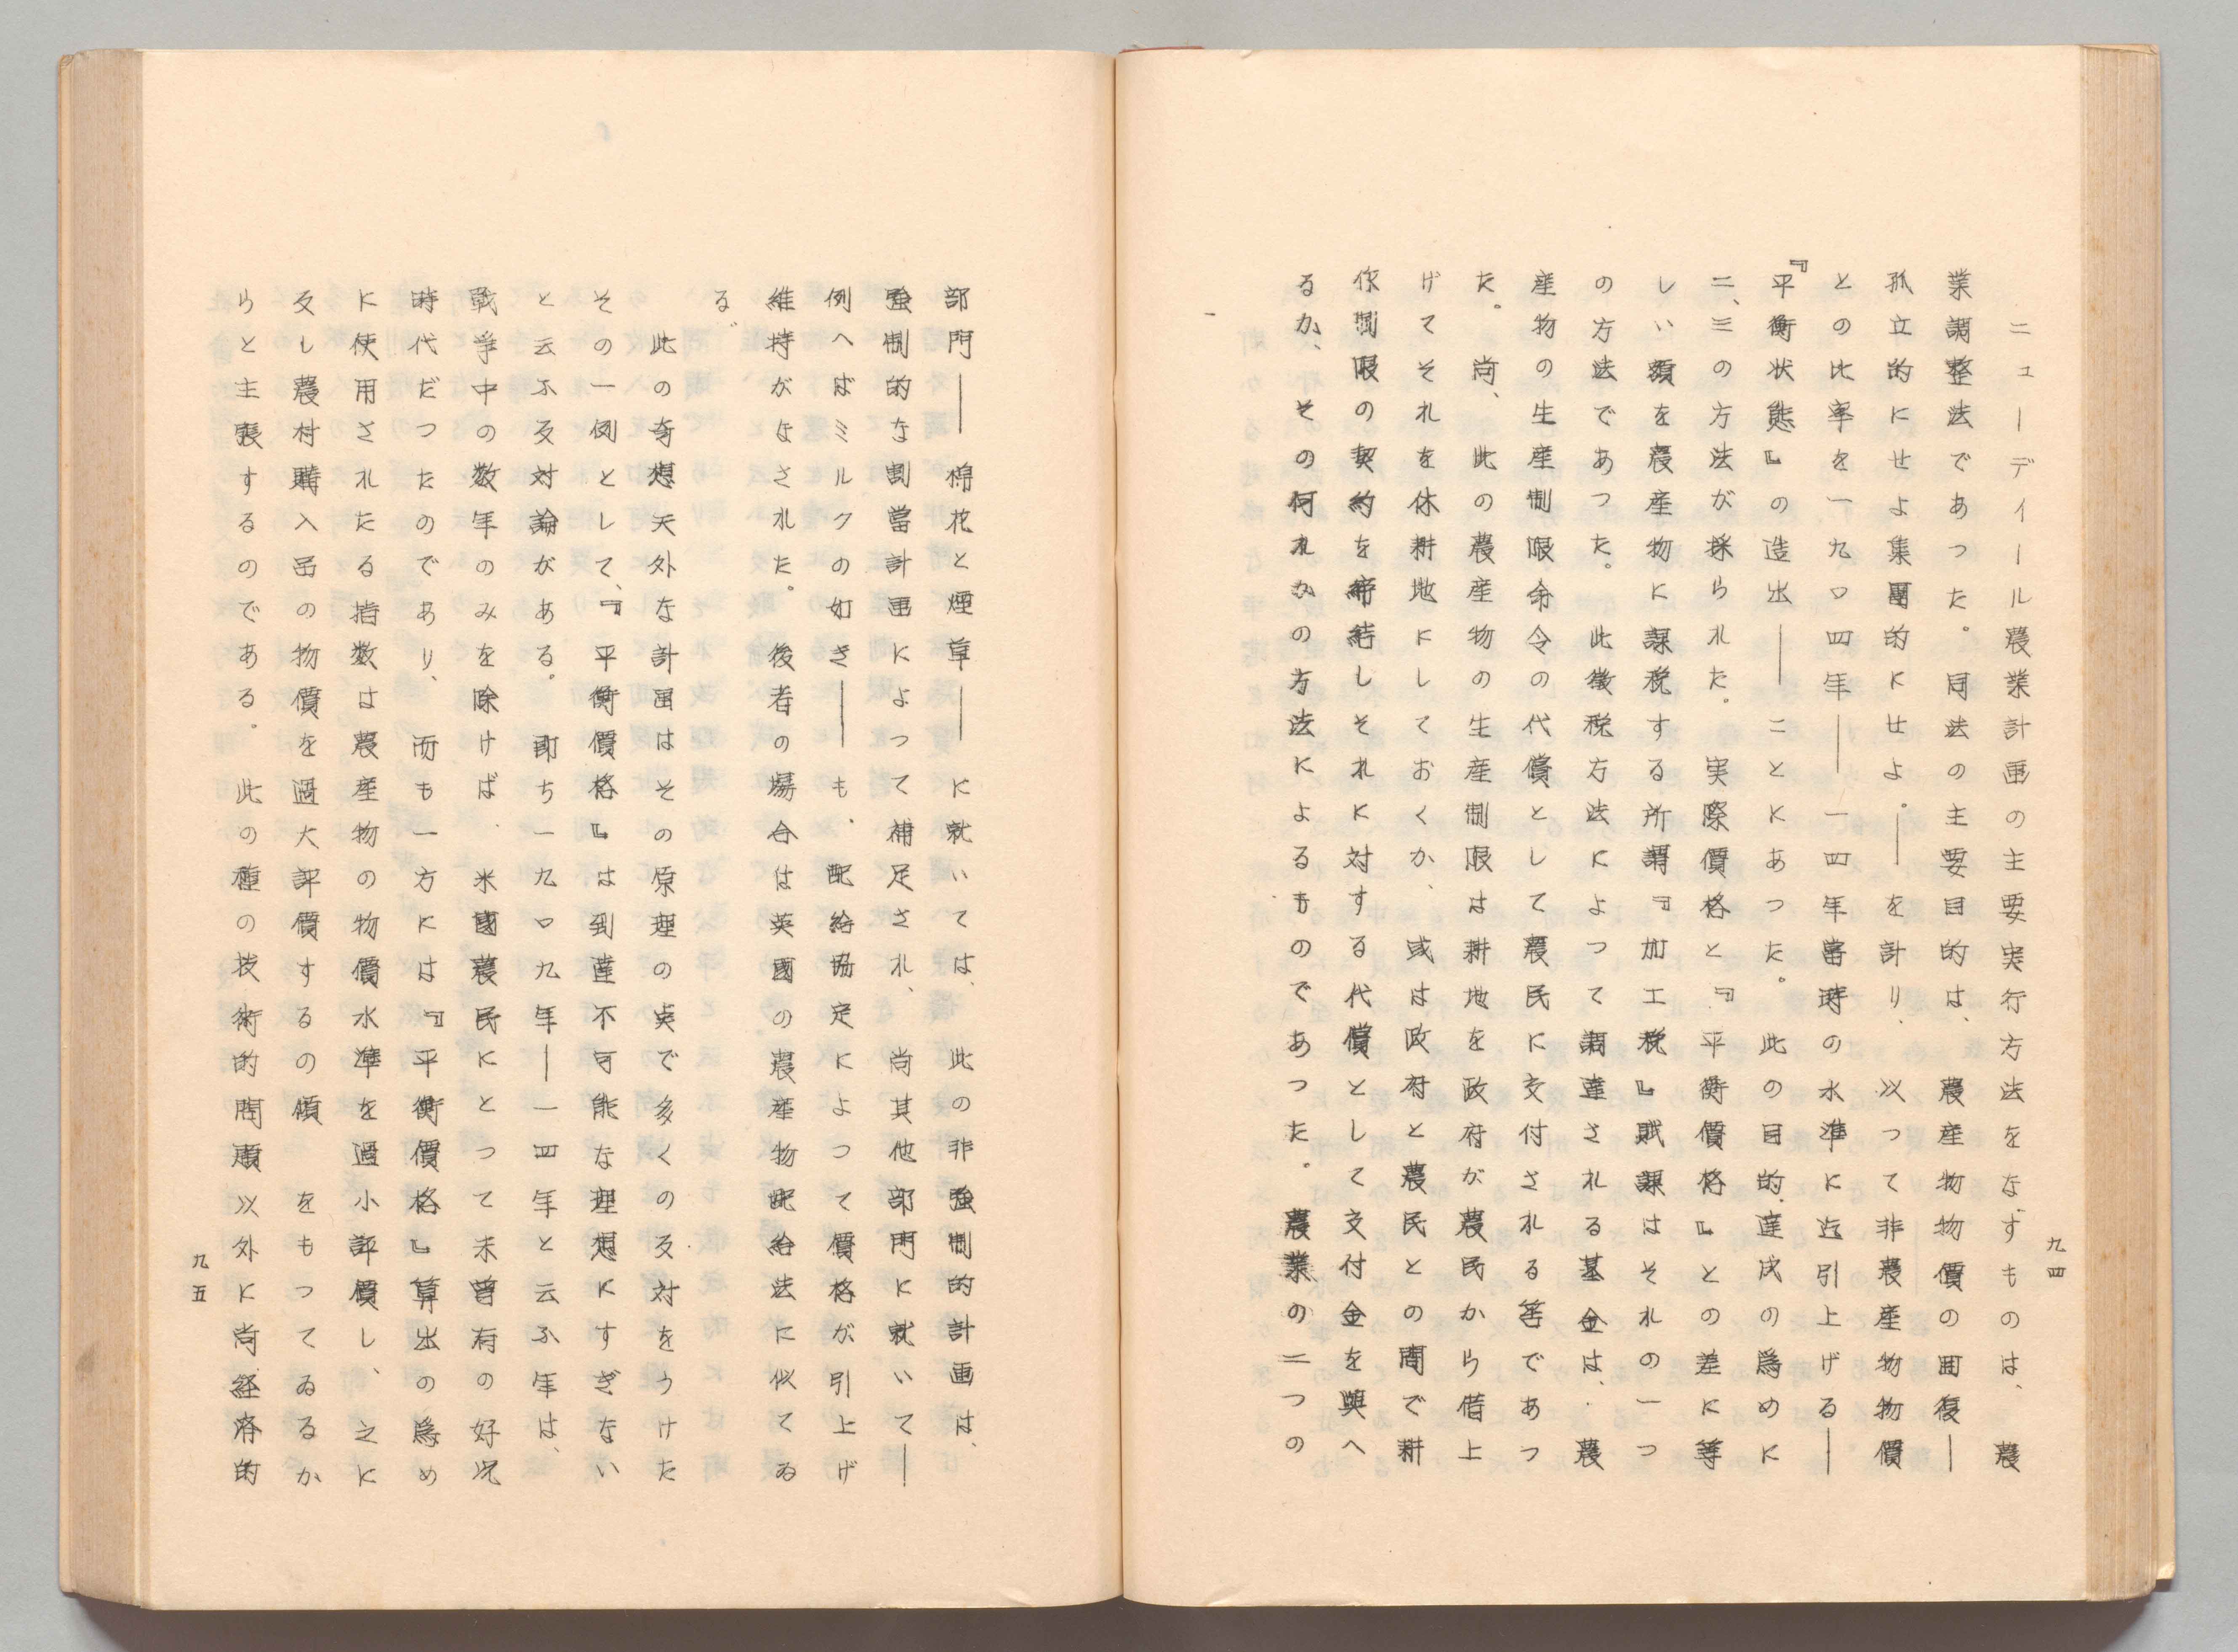 九四
ニューディール農業計画の主要実行方法をなすものは、農
業調整法であった。同法の主要目的は、農産物物價の囘復——
孤立的にせよ集團的にせよ。——を計り、以つて非農産物物價
との比率を一九〇四年——一四年當時の水準に迄引上げる——
『平衡状態』の造出——ことにあつた。此の目的達成の爲めに
二、三の方法が採られた。実際價格と『平衡價格』との差に等
しい額を農産物に課税する所謂『加工税』賦課はそれの一つ
の方法であつた。此徴税方法によつて調達される基金は、農
産物の生産制限命令の代償として農民に交付される筈であつ
た。尚、此の農産物の生産制限は耕地を政府が農民から借上
げてそれを休耕地にしておくか、或は政府と農民との間で耕
作制限の契約を締結しそれに対する代償として交付金を與へ
るか、その何れかの方法によるものであつた。農業の二つの
部門——棉花と煙草——に就いては、此の非強制的計画は、
強制的な割當計画によつて補足され、尚其他部門に就いて——
例へばミルクの如き——も、配給協定によつて價格が引上げ
維持がなされた。後者の場合は英國の農産物配給法に似てゐ
る。
此の奇想天外な計画はその原理の点で多くの反対をうけた
その一例として、『平衡價格』は到達不可能な理想にすぎない
と云ふ反対論がある。即ち一九〇九年——一四年と云ふ年は、
戰爭中の数年のみを除けば、米國農民にとつて未曾有の好況
時代だつたのであり、而も一方には『平衡價格』算出の爲め
に使用されたる指数は農産物の物價水準を過小評價し、之に
反し農村購入品の物價を過大評價するの傾をもつてゐるか
らと主張するのである。此の種の技術的問題以外に尚経済的
九五